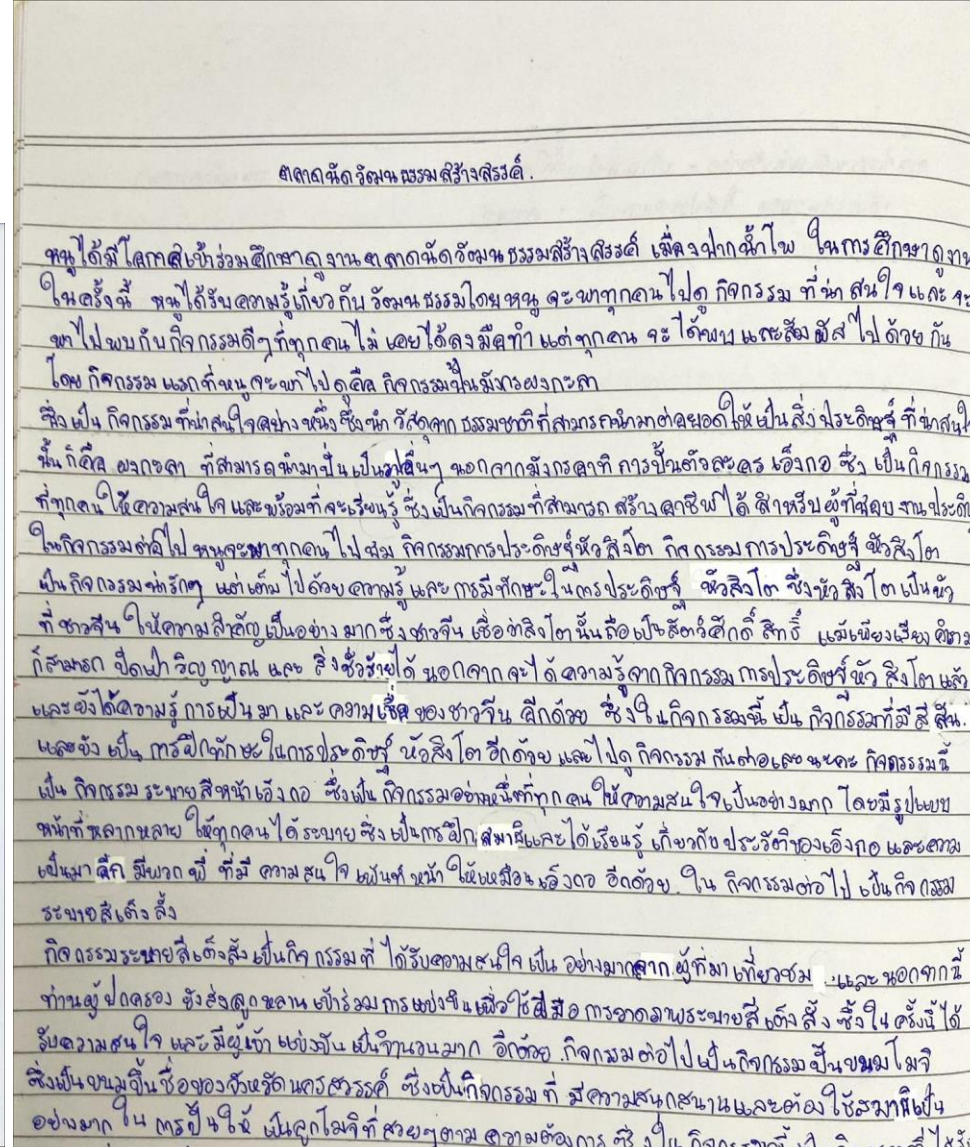 ตลาดนัดวัฒนธรรมสร้างสรรค์.
หนูได้มีโอกาสเข้าร่วมศึกษาดูงานตลาดนัดวัฒนธรรมสร้างสรรค์ เมืองปากน้ำโพ ในการศึกษาดูงาน
ในครั้งนี้ หนูได้รับความรู้เกี่ยวกับวัฒนธรรมโดยหนูจะพาทุกคนไปดูกิจกรรม ที่น่าสนใจและจะ
พาไปพบกับกิจกรรมดีๆที่ทุกคนไม่เคยได้ลงมือทำ แต่ทุกคนจะได้พบและสัมผัสไปด้วยกัน
โดยกิจกรรมแรกที่หนูจะพาไปดูคือ กิจกรรมปั้นมังกรผงกะลา
ซึ่งเป็นกิจกรรมที่น่าสนใจอย่างหนึ่งซึ่งนำวัสดุจากธรรมชาติที่สามารถนำมาต่อยอดให้เป็นสิ่งประดิษฐ์ที่น่าสนใจ
นั้นก็คือ ผงกะลา ที่สามารถนำมาปั้นเป็นอื่นๆ นอกจากมังกรอาทิ การปั้นตัวละคร เอ็งกอ ซึ่งเป็นกิจกรรม
ที่ทุกคนให้ความสนใจและพร้อมที่จะเรียนรู้ ซึ่งเป็นกิจกรรมที่สามารถสร้างอาชีพได้ สำหรับผู้ที่ชอบงานประดิ
ในกิจกรรมต่อไป หนูจะพาทุกคนไปชม กิจกรรมการประดิษฐ์หัวสิงโต กิจกรรมการประดิษฐ์ หัวสิงโต
เป็นกิจกรรมน่ารักๆ แต่เต็มไปด้วยความรู้และการมีทักษะในการประดิษฐ์ หัวสิงโต ซึ่งหัวสิงโตเป็นหัว
ที่ชาวจีนให้ความสำคัญเป็นอย่างมากซึ่งชาวจีนเชื่อว่าสิงโตนั้นถือเป็นสัตว์ศักดิ์สิทธิ์ แม้เพียงเสียงคำราม
ก็สามารถ ปัดเป่าวิญญาณ และ สิ่งชั่วร้ายได้ นอกจากจะได้ความรู้จากกิจกรรมการประดิษฐ์หัวสิงโตแล้ว
และยังได้ความรู้การเป็นมาและความเชื่อของชาวจีน อีกด้วย ซึ่งในกิจกรรมนี้เป็นกิจกรรมที่มีสีสัน.
และยังเป็น การฝึกทักษะในการประดิษฐ์ หัวสิงโตอีกด้วย และไปดูกิจกรรมกันต่อเลยนะคะ กิจกรรมนี้
เป็นกิจกรรมระบายสีหน้าเอ็งกอ ซึ่งเป็นกิจกรรมอย่างหนึ่งที่ทุกคนให้ความสนใจเป็นอย่างมาก โดยมีรูปแบบ
หน้าที่หลากหลาย ให้ทุกคนได้ระบายซึ่งเป็นการฝึกสมาธิและได้เรียนรู้ เกี่ยวกับประวัติของเอ็งกอ และความ
เป็นมา อีก มีพวกพี่ ที่มีความสนใจเพ้นท์หน้าให้เหมือนเอ็งกอ อีกด้วย. ในกิจกรรมต่อไปเป็นกิจกรรม
ระบายสีเต็งลั้ง
กิจกรรมระบายสีเต็งลั้งเป็นกิจกรรมที่ได้รับความสนใจเป็นอย่างมากจาก ผู้ที่มาเที่ยวชม และนอกจากนี้
ท่านผู้ปกครอง ยังส่งลูกหลานเข้าร่วมการแข่งขันเพื่อใช้ฝีมือการวาดภาพระบายสีเต็งลั้ง ซึ้งในครั้งนี้ได้
รับความสนใจ และมีผู้เข้าแข่งขันเป็นจำนวนมาก อีกด้วย.กิจกรรมต่อไปเป็นกิจกรรมปั้นขนมโมจิ
ซึ่งเป็นขนมขึ้นชื่อของจังหวัดนครสวรรค์ ซึ่งเป็นกิจกรรมที่ มีความสนุกสนานและต้องใช้สมาธิเป็น
อย่างมาก ในการปั้นให้เป็นลูกโมจิที่สวยๆตาม ความต้องการ ซึ่งในกิจกรรมนี้